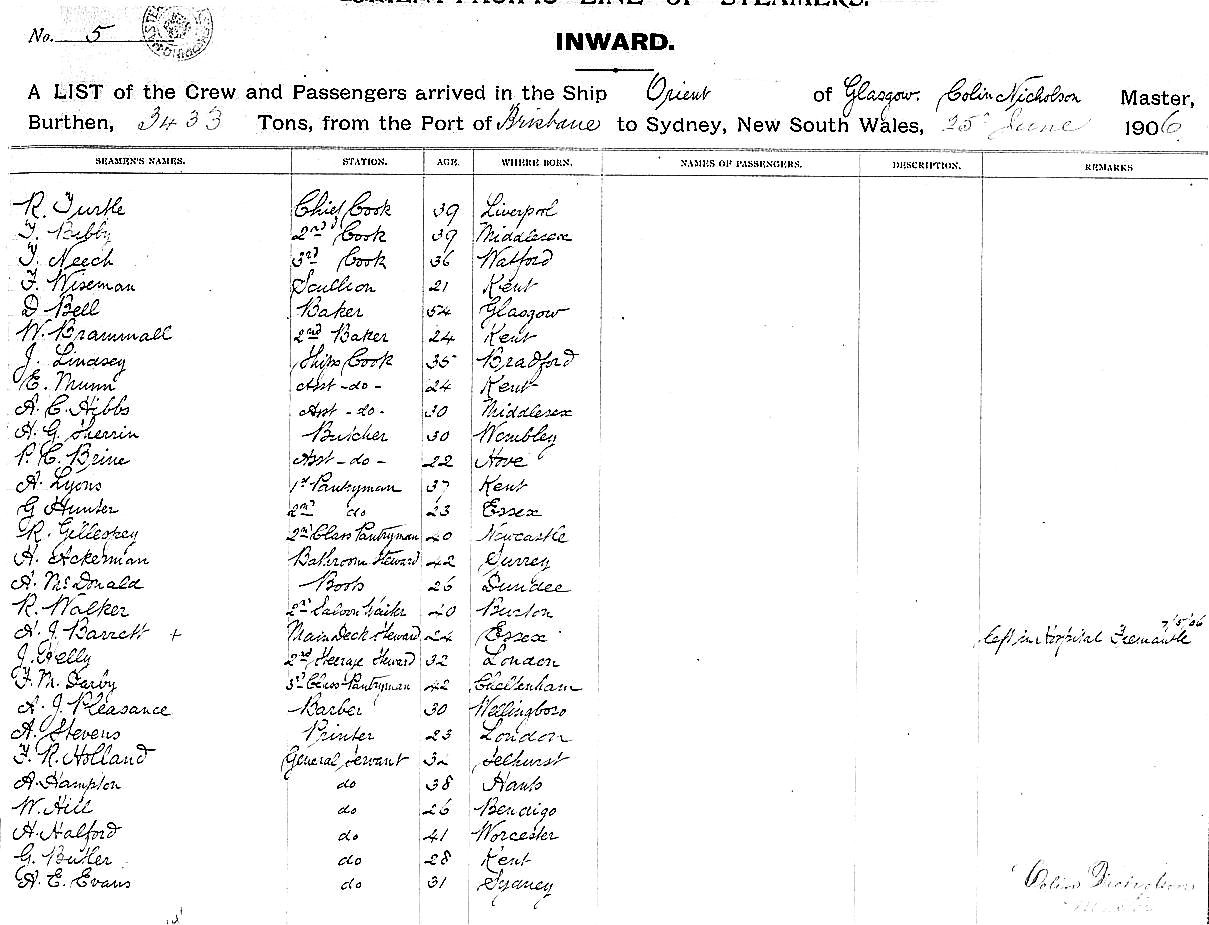 ORIENT-PACIFIC LINE OF STEAMERS.
No. 5
INWARD.
A LIST of the Crew and Passengers arrived in the Ship Orient of Glasgow. Colin Nicholson Master,
Burthen, 3433 Tons, from the Port of Brisbane to Sydney, New South Wales, 25 June 1906
SEAMEN'S NAMES. STATION. AGE. WHERE BORN. NAMES OF PASSENGERS. DESCRIPTION. REMARKS
R. Turtle Chief Cook 39 Liverpool
T. Bibby 2nd Cook 39 Middlesex
T. Neech 3rd Cook 36 Watford
F. Wiseman Scullion 21 Kent
D Bell Baker 54 Glasgow
W. Brammall 2nd Baker 24 Kent
J. Lindsey Ships Cook 35 Bradford
E. Munn Asst -do- 24 Kent
A. C. Hibbs Asst -do- 30 Middlesex
A. G. Sherrin Butcher 30 Wembley
P. C. Brine Asst -do- 22 Hove
A. Lyons 1st Pantryman 37 Kent
G Hunter 2nd do 23 Essex
R. Gilleskey 2nd Class Pantryman 40 Newcastle
H. Ackerman Bathroom Steward 42 Surrey
A. McDonald Boots 26 Dundee
R. Walker 2nd Saloon Waiter 40 Buxton
A. J. Barrett + Main Deck Steward 24 Essex left in Hospital Fremantle 7/5/06
J. Kelly 2nd Steerage Steward 32 London
F. M. Darby 3rd Class Pantryman 42 Cheltenham
A. J. Pleasance Barber 30 Wellingboro
A. Stevens Printer 23 London
F. R. Holland General Servant 32 Selhurst
A. Hampton do 38 Hants
W. Hill do 26 Bendigo
H. Halford do 41 Worcester
G. Butler do 28 Kent
A. E. Evans do 31 Sydney
Colin Nicholson
Master